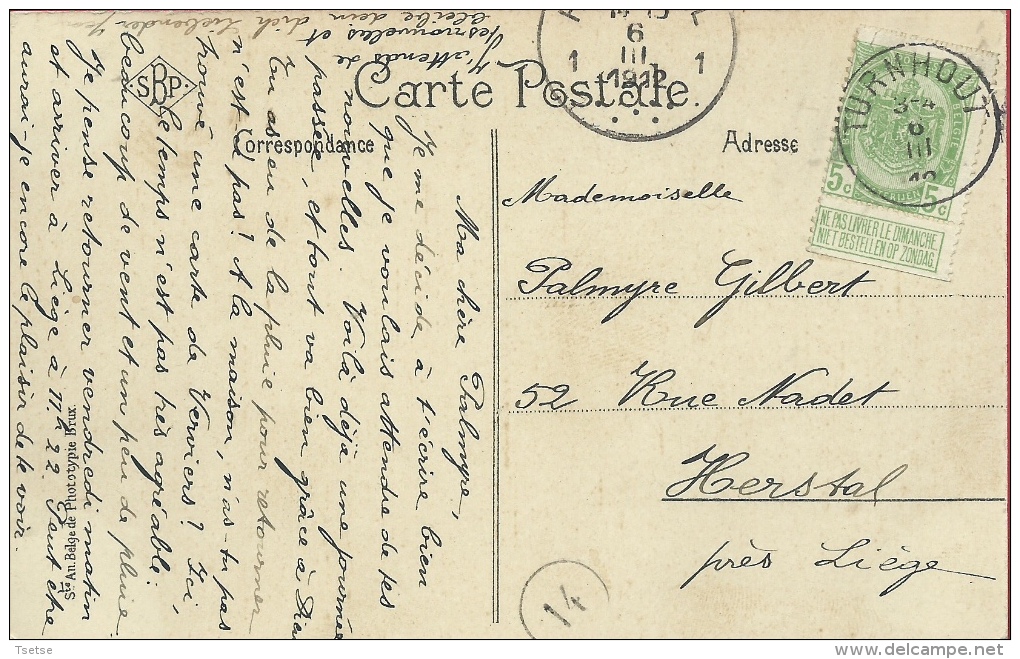 Carte Postale.
Correspondance
Adresse
SBP
Ma chère Palmyre,
Je me décide à t'écrire bien
que je voulais attendre de tes
nouvelles. Voilà déjà une journée
passée, et tout va bien grâce à
Tu as eu de la pluie pour retourner
n'est-ce pas? A la maison, n'as-tu pas
trouvé une carte de Verviers? Ici,
le temps n'est pas très agréable:
beaucoup de vent et un peu de pluie.
Je pense retourner vendredi matin
et arriver à Liège à 11h 22. Peut être
aurai-je encore le plaisir de te voir.
J'attends de
tes nouvelles et
bleibe dein dich liebender
Mademoiselle
Palmyre Gilbert
52 Rue Nadet
Herstal
près Liège
TURNHOUT
6
III
12
1 6 1
III
1912
BELGIE
5c 5c
NE PAS LIVRER LE DIMANCHE
NIET BESTELLEN OP ZONDAG
14
Sté An. Belge de Phototypie Brux.
Tsetse
delcampe.net